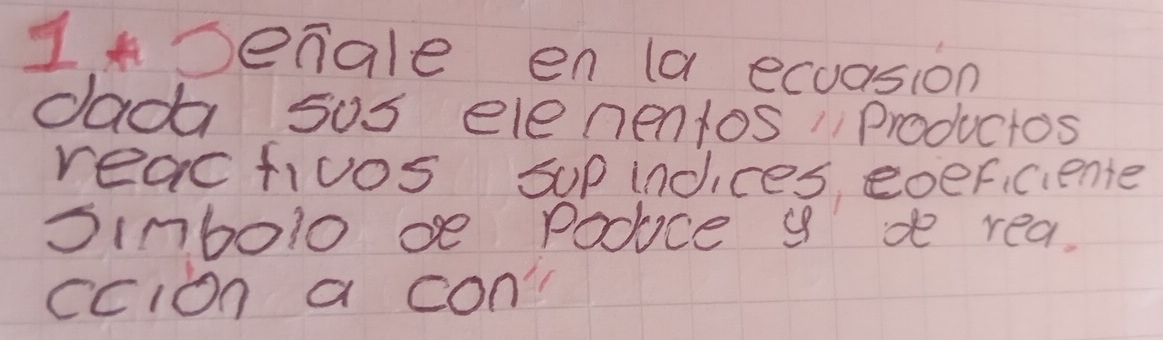 1 * Señale en la ecuasión
dada sus elenentos " Productos
reactivos supindices, coeficiente
Simbolo de Poduce y de rea.
cción a con "